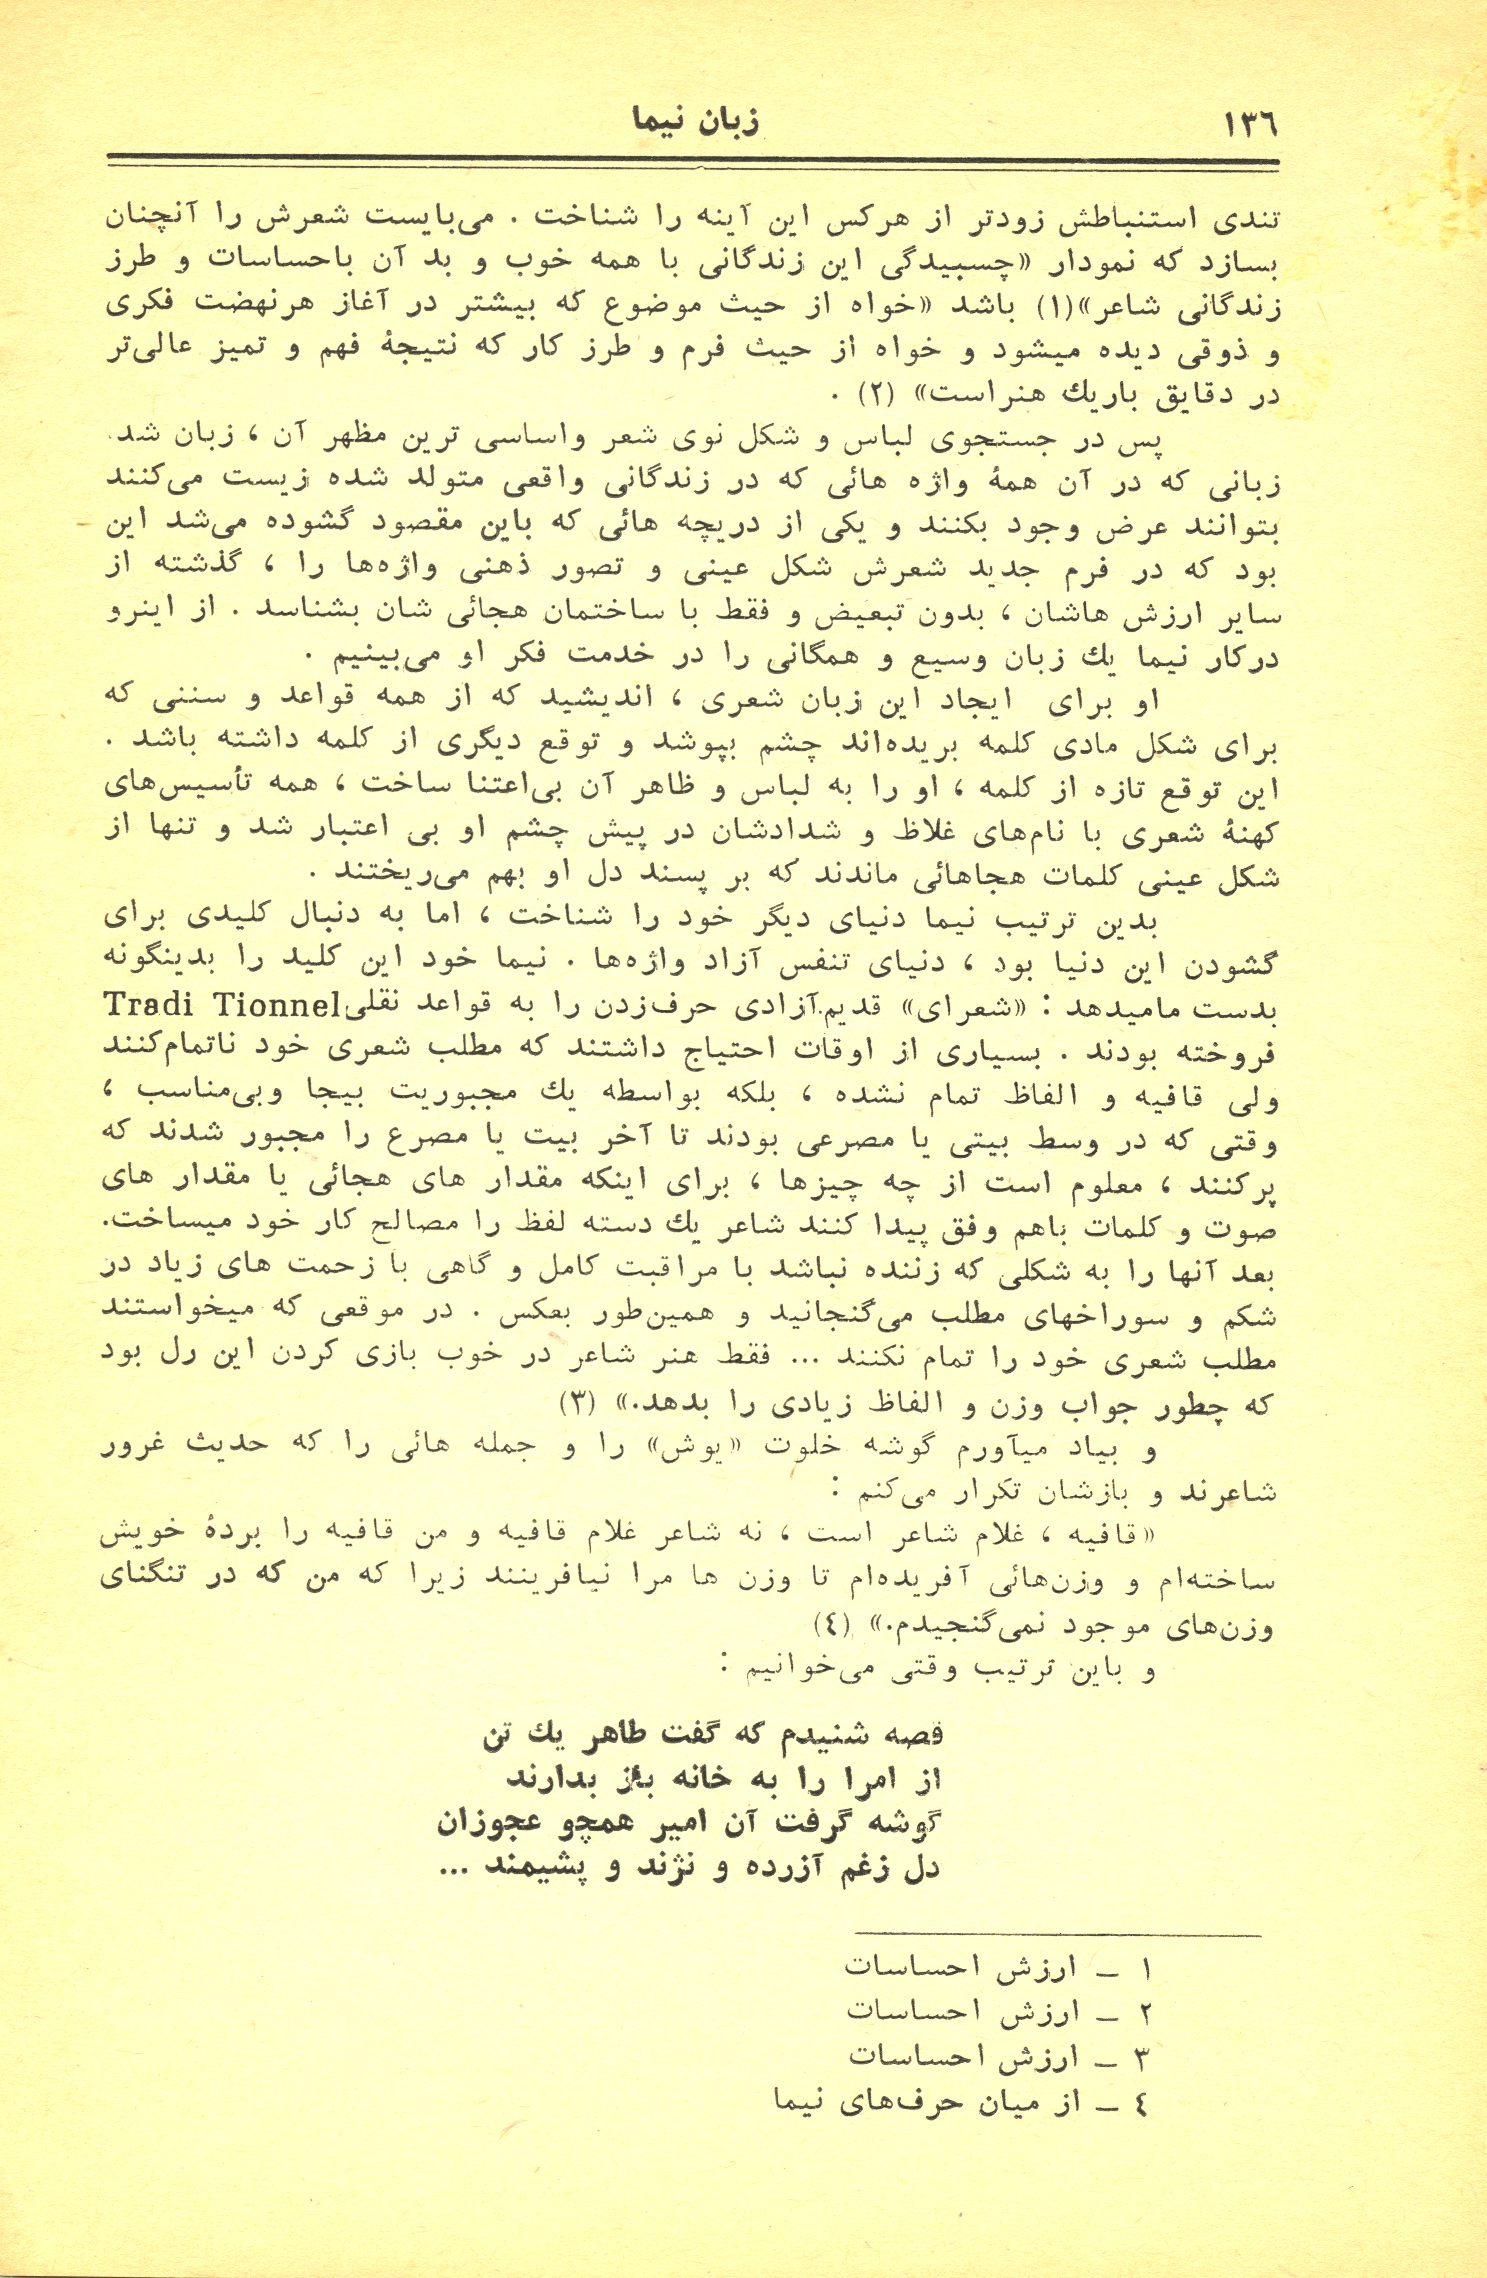 ١٣٦
زبان نیما
تندی استنباطش زودتر از هرکس این آینه را شناخت . می‌بایست شعرش را آنچنان
بسازد که نمودار «چسبیدگی این زندگانی با همه خوب و بد آن باحساسات و طرز
زندگانی شاعر»(۱) باشد «خواه از حیث موضوع که بیشتر در آغاز هرنهضت فکری
و ذوقی دیده میشود و خواه از حیث فرم و طرز کار که نتیجهٔ فهم و تمیز عالی‌تر
در دقایق باریك هنراست» (۲) .
پس در جستجوی لباس و شکل نوی شعر واساسی ترین مظهر آن ، زبان شد.
زبانی که در آن همهٔ واژه هائی که در زندگانی واقعی متولد شده زیست می‌کنند
بتوانند عرض وجود بکنند و یکی از دریچه هائی که باین مقصود گشوده می‌شد این
بود که در فرم جدید شعرش شکل عینی و تصور ذهنی واژه‌ها را ، گذشته از
سایر ارزش هاشان ، بدون تبعیض و فقط با ساختمان هجائی شان بشناسد . از اینرو
درکار نیما یك زبان وسیع و همگانی را در خدمت فکر او می‌بینیم .
او برای ایجاد این زبان شعری ، اندیشید که از همه قواعد و سننی که
برای شکل مادی کلمه بریده‌اند چشم بپوشد و توقع دیگری از کلمه داشته باشد .
این توقع تازه از کلمه ، او را به لباس و ظاهر آن بی‌اعتنا ساخت ، همه تأسیس‌های
کهنهٔ شعری با نام‌های غلاظ و شدادشان در پیش چشم او بی اعتبار شد و تنها از
شکل عینی کلمات هجاهائی ماندند که بر پسند دل او بهم می‌ریختند .
بدین ترتیب نیما دنیای دیگر خود را شناخت ، اما به دنبال کلیدی برای
گشودن این دنیا بود ، دنیای تنفس آزاد واژه‌ها . نیما خود این کلید را بدینگونه
بدست مامیدهد : «شعرای» قدیم.آزادی حرف‌زدن را به قواعد نقلیTradi Tionnel
فروخته بودند . بسیاری از اوقات احتیاج داشتند که مطلب شعری خود ناتمام‌کنند
ولی قافیه و الفاظ تمام نشده ، بلکه بواسطه یك مجبوریت بیجا وبی‌مناسب ،
وقتی که در وسط بیتی یا مصرعی بودند تا آخر بیت یا مصرع را مجبور شدند که
پرکنند ، معلوم است از چه چیزها ، برای اینکه مقدار های هجائی یا مقدار های
صوت و کلمات باهم وفق پیدا کنند شاعر یك دسته لفظ را مصالح کار خود میساخت.
بعد آنها را به شکلی که زننده نباشد با مراقبت کامل و گاهی با زحمت های زیاد در
شکم و سوراخهای مطلب می‌گنجانید و همین‌طور بعکس . در موقعی که میخواستند
مطلب شعری خود را تمام نکنند ... فقط هنر شاعر در خوب بازی کردن این رل بود
که چطور جواب وزن و الفاظ زیادی را بدهد.» (۳)
و بیاد میآورم گوشه خلوت «یوش» را و جمله هائی را که حدیث غرور
شاعرند و بازشان تکرار می‌کنم :
«قافیه ، غلام شاعر است ، نه شاعر غلام قافیه و من قافیه را بردهٔ خویش
ساخته‌ام و وزن‌هائی آفریده‌ام تا وزن ها مرا نیافرینند زیرا که من که در تنگنای
وزن‌های موجود نمی‌گنجیدم.» (٤)
و باین ترتیب وقتی می‌خوانیم :
قصه شنیدم که گفت طاهر یك تن
از امرا را به خانه باز بدارند
گوشه گرفت آن امیر همچو عجوزان
دل زغم آزرده و نژند و پشیمند ...
۱ ـ ارزش احساسات
۲ ـ ارزش احساسات
۳ ـ ارزش احساسات
٤ ـ از میان حرف‌های نیما